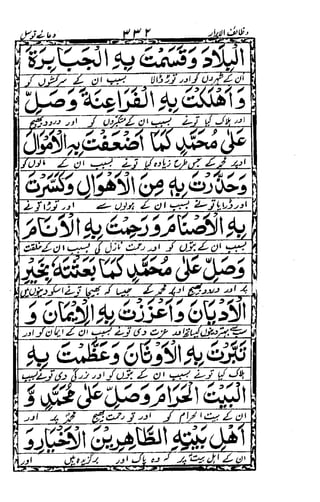 وظائف الابرار ٣٣٢ دعائے توسل
الْبِلَادَ وَقَسَمْتَ بِهِ الْجَبَابِرَةَ
ان کے شہروں کو اور توڑ ڈالا بسبب ان کے سرکشوں کو
وَاَهْلَكْتَ بِهِ الْفَرَاعِنَةَ وَصَلِّ
اور ہلاک کیا تونے بسبب ان کے متکبروں کو اور درود بھیج
عَلٰى مُحَمَّدٍ كَمَا اَضْعَفْتَ بِهِ الْاَمْوَالَ
اوپر محمد کے جس طرح زیادہ کیا تونے بسبب ان کے مالوں کو
وَحَذَّرْتَ بِهٖ مِنَ الْاَهْوَالِ وَكَسَرْتَ
اور ڈرایا تونے بسبب ان کے ہولوں سے اور توڑا تونے
بِهِ الْاَصْنَامَ وَرَحِمْتَ بِهِ الْاَنَامَ
بسبب ان کے بتوں کو اور رحمت نازل کی بسبب ان کے خلقت
وَصَلِّ عَلٰى مُحَمَّدٍ كَمَا بَعَثْتَهٗ بِخَيْرِ
پر اور درود بھیج اوپر محمد کے جیسا کہ بھیجا تونے اسکو دینوں میں
الْاَدْيَانِ وَاَعْزَزْتَ بِهِ الْاِيْمَانَ وَ
سے بہتر دین کیساتھ اور عزت دی تونے بسبب ان کے ایمان کو اور
تَبَّرْتَ بِهِ الْاَوْثَانَ وَعَظَّمْتَ بِهِ
ہلاک کیا تونے بسبب ان کے بتوں کو اور بزرگی دی تونے بسبب
الْبَيْتَ الْحَرَامَ وَصَلِّ عَلٰى مُحَمَّدٍ وَّ
ان کے بیت الحرام کو اور تو رحمت بھیج محمد پر اور
اَهْلِ بَيْتِهِ الطَّاهِرِيْنَ الْاَخْيَارِ وَ
ان کے اہل بیت پر کہ وہ پاک اور برگزیدہ ہیں اور